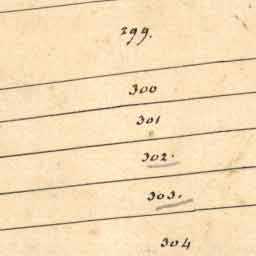 299.
300
301
302.
303.
304